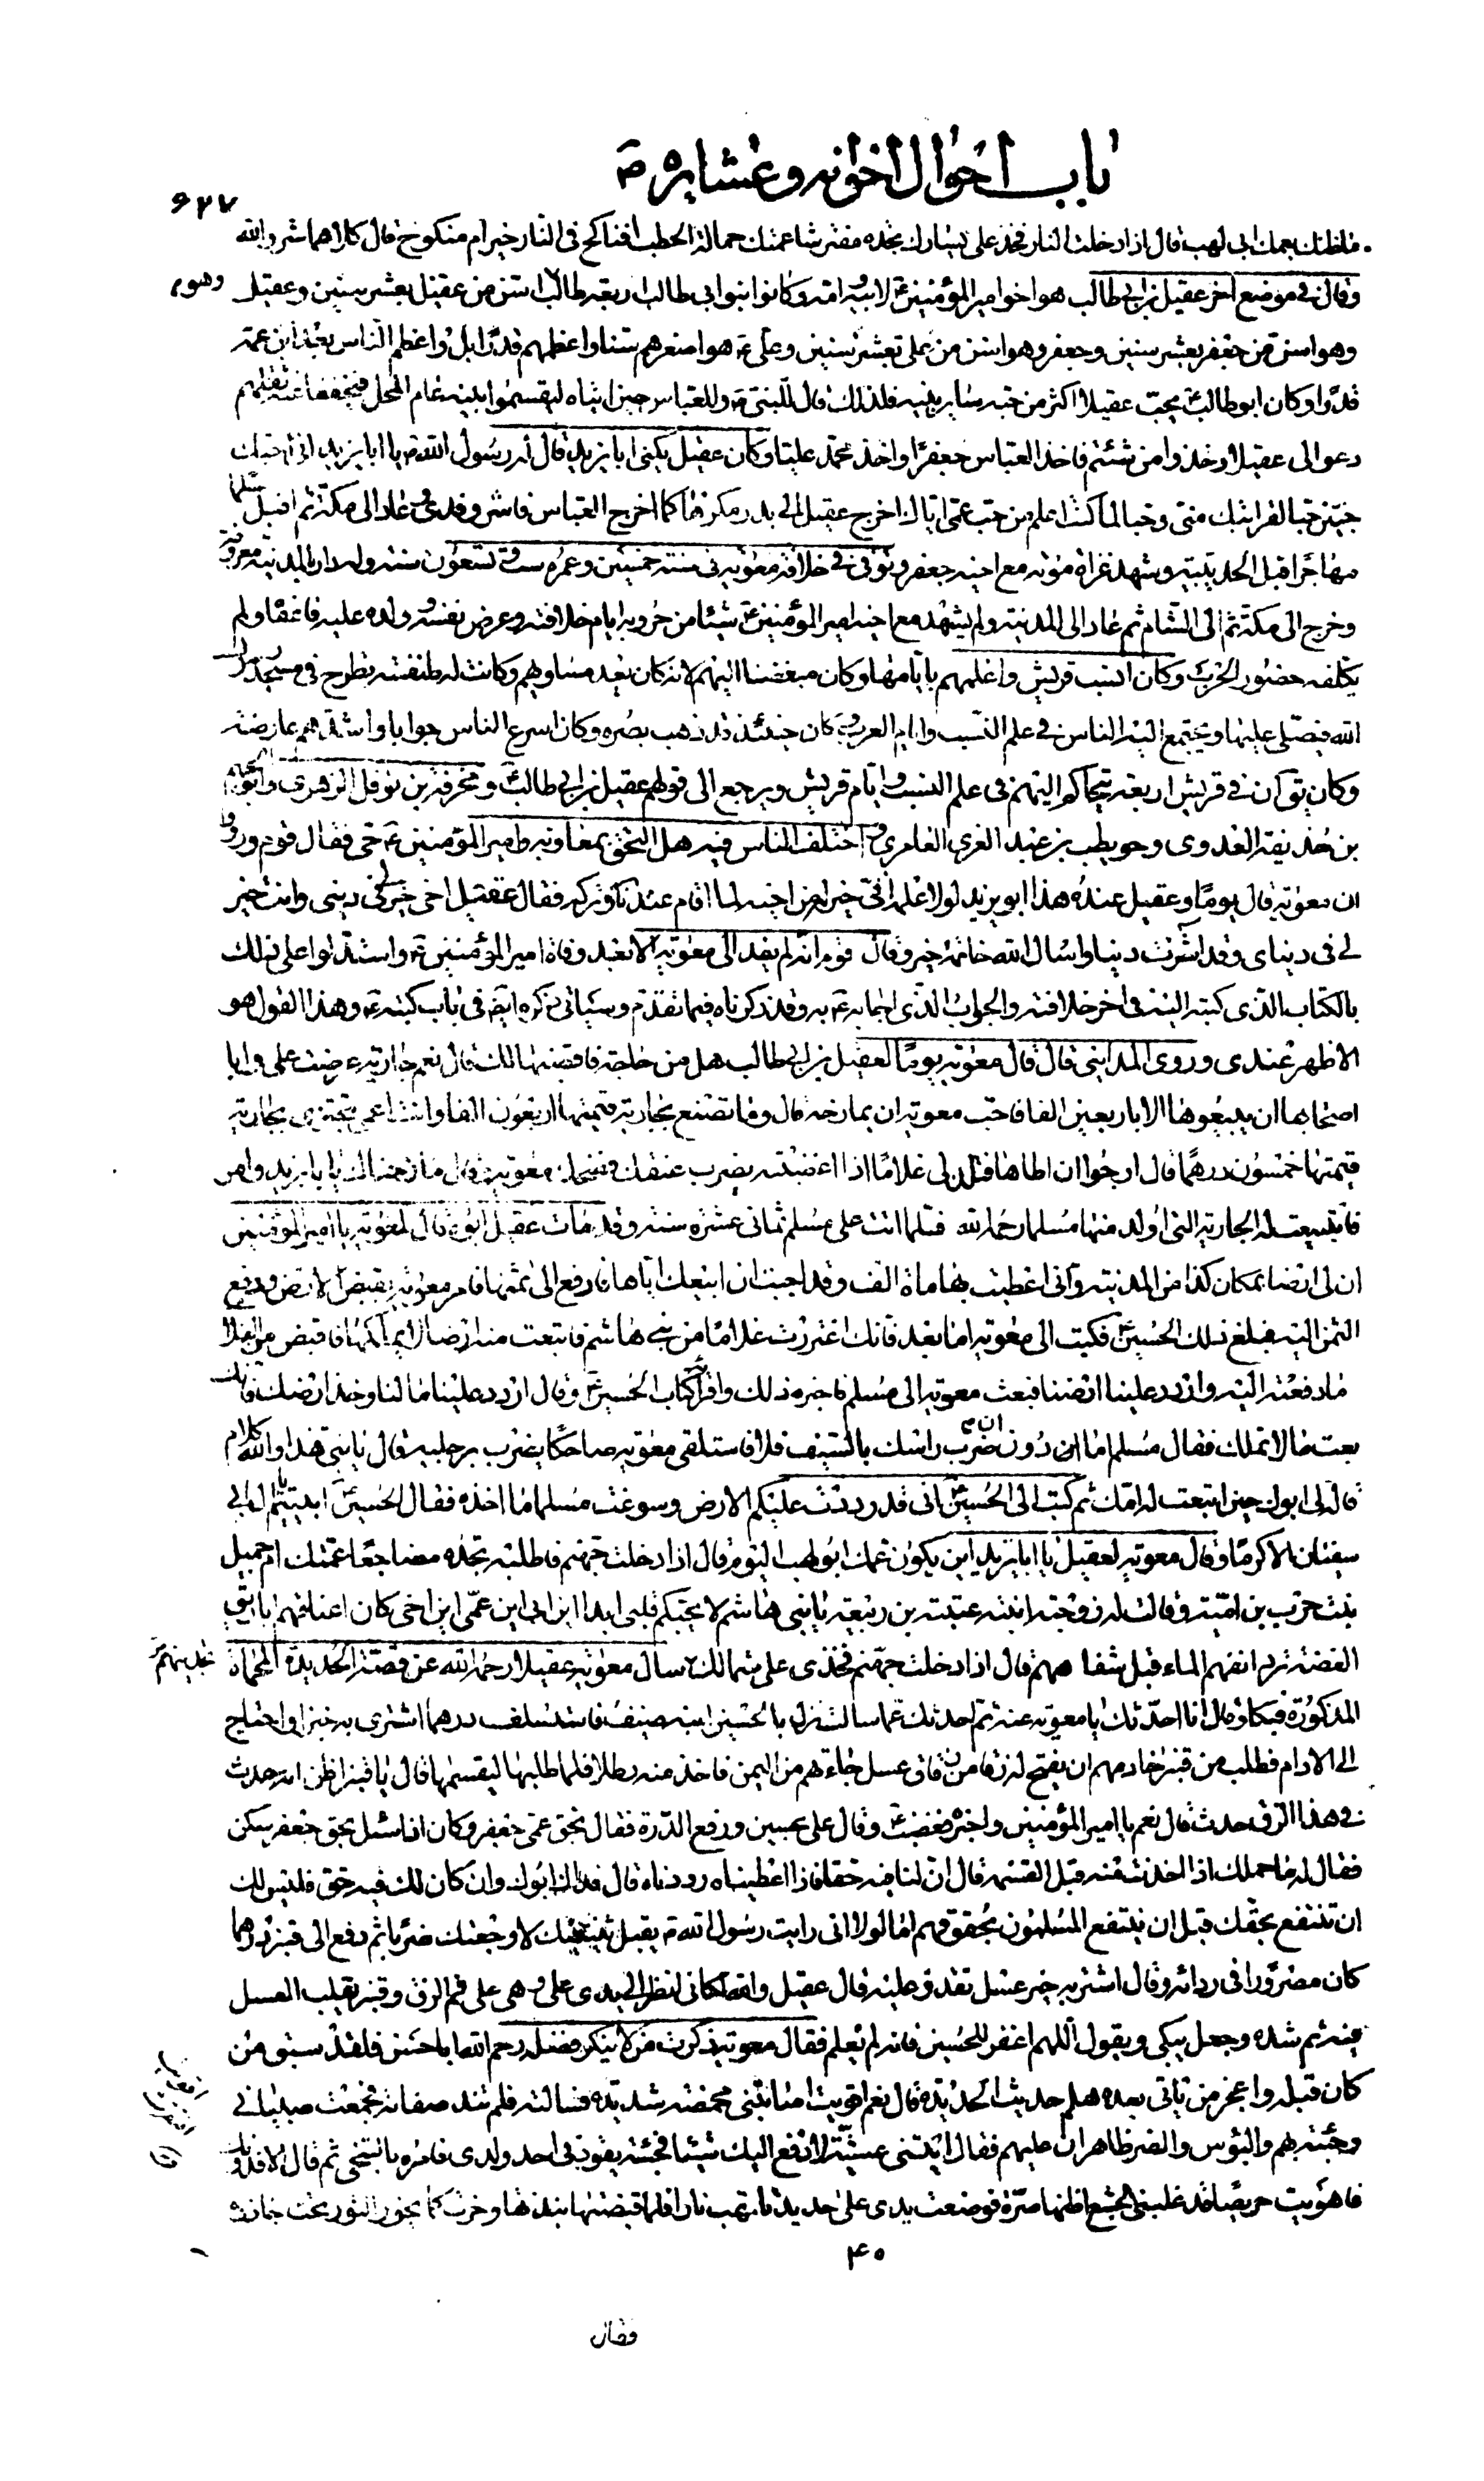 باب احوال اخوانه وعشايره ع
۶۲۷
ما ظنك بعمك ابي لهب قال اذا دخلت النار فخذ على يسارك تجده مفترشا عمتك حمالة الحطب افناكح في النار خير ام منكوح قال كلاهما شر والله
وقال في موضع آخر عقيل بن ابي طالب هو اخو امير المؤمنين ع لابيه وامه وكانوا بنو ابي طالب اربعة طالب اسن من عقيل بعشر سنين وعقيل
وهو اسن من جعفر بعشر سنين وجعفر وهو اسن من علي بعشر سنين وعلي ع هو اصغرهم سنا واعظمهم قدرا بل واعظم الناس بعد ابن عمه
قدرا وكان ابو طالب يحب عقيلا اكثر من حبه سائر بنيه فلذلك قال للنبي ص وللعباس حين اتياه ليقتسموا بنيه عام المحل فيخففا عنه ثقلهم
دعوا لي عقيلا وخذوا من شئتم فاخذ العباس جعفرا واخذ محمد عليا وكان عقيل يكنى ابا يزيد قال له رسول الله ص يا ابا يزيد اني احبك
حبين حبا لقرابتك مني وحبا لما كنت اعلم من حب عمي اياك اخرج عقيل الى بدر مكرها كما اخرج العباس فاسر وفدي وعاد الى مكة ثم اقبل مسلما
مهاجرا قبل الحديبية وشهد غزاة موتة مع اخيه جعفر وتوفي في خلافة معوية في سنة خمسين وعمره ست وتسعون سنة وله دار بالمدينة معروفة
وخرج الى مكة ثم الى الشام ثم عاد الى المدينة ولم يشهد مع اخيه امير المؤمنين ع شيئا من حروبه ايام خلافته وعرض نفسه وولده عليه فاعفاه ولم
يكلفه حضور الحرب وكان انسب قريش واعلمهم بايامها وكان مبغضا اليهم لانه كان يعد مساويهم وكانت له طنفسة تطرح في مسجد رسول
الله فيصلي عليها ويجتمع اليه الناس في علم النسب وايام العرب وكان حينئذ قد ذهب بصره وكان اسرع الناس جوابا واشدهم عارضة
وكان يق ان في قريش اربعة يتحاكم اليهم في علم النسب وايام قريش ويرجع الى قولهم عقيل بن ابي طالب ومخرمة بن نوفل الزهري وابو جهم
بن حذيفة العدوي وحويطب بن عبد العزى العامري واختلف الناس فيه هل التحق بمعاوية وامير المؤمنين ع حي فقال قوم ورووا
ان معوية قال يوما وعقيل عنده هذا ابو يزيد لولا علمه اني خير له من اخيه لما اقام عندنا وتركه فقال عقيل اخي خير لي في ديني وانت خير
لي في دنياي وقد اثرت دنيا واسال الله خاتمة خير وقال قوم انه لم يفد الى معوية الا بعد وفاة امير المؤمنين ع واستدلوا على ذلك
بالكتاب الذي كتبه اليه في اخر خلافته والجواب الذي اجابه ع به وقد ذكرناه فيما تقدم وسياتي ذكره ايض في باب كتبه ع وهذا القول هو
الاظهر عندي وروى المدايني قال قال معوية يوما لعقيل بن ابي طالب هل من حاجة فاقضيها لك قال نعم جارية عرضت علي وابا
اصحابها ان يبيعوها الا باربعين الفا فاحب معوية ان يمازحه قال وما تصنع بجارية قيمتها اربعون الفا وانت اعمى تجتزي بجارية
قيمتها خمسون درهما قال ارجو ان اطاها فتلد لي غلاما اذا اغضبته يضرب عنقك فضحك معوية وقال مازحناك يا ابا يزيد وامر
فابتيعت له الجارية التي اولد منها مسلما رحمه الله فلما اتت على مسلم ثماني عشرة سنة وقد مات عقيل ابوه قال لمعوية يا امير المؤمنين
ان لي ارضا بمكان كذا من المدينة واني اعطيت بها ماة الف وقد احببت ان ابيعك اياها فادفع الى ثمنها فامر معوية بقبض الارض ودفع
الثمن اليه فبلغ ذلك الحسين ع فكتب الى معوية اما بعد فانك اغتررت غلاما من بني هاشم فابتعت منه ارضا لا يملكها فاقبض من الغلام
ما دفعته اليه واردد علينا ارضنا فبعث معوية الى مسلم فاخبره ذلك واقرأه كتاب الحسين ع وقال اردد علينا مالنا وخذ ارضك فانك
بعت ما لا تملك فقال مسلم اما دون ان اضرب راسك بالسيف فلا فاستلقى معوية ضاحكا يضرب برجليه قال يا بني هذا والله كلام
قاله لي ابوك حين ابتعت له امك ثم كتب الى الحسين ع اني قد رددت عليكم الارض وسوغت مسلما ما اخذه فقال الحسين ع ابيتم يا ال ابي
سفيان الا كرما وقال معوية لعقيل يا ابا يزيد اين يكون عمك ابو لهب اليوم قال اذا دخلت جهنم فاطلبه تجده مضاجعا عمتك ام جميل
بنت حرب بن امية وقالت له زوجته ابنة عتبة بن ربيعة يا بني هاشم لا يحبكم قلبي ابدا اين ابي اين عمي اين اخي كان اعناقهم اباريق
الفضة ترد انفهم الماء قبل شفاههم قال اذا دخلت جهنم فخذي على شمالك سال معوية عقيلا رحمه الله عن قصة الحديدة المحماة
المذكورة فبكا وقال انا احدثك يا معوية عنه ثم احدثك عما سالت نزل بالحسين ابنه ضيف فاستسلف درهما اشترى به خبزا واحتاج
الى الادام فطلب من قنبر خادمهم ان يفتح له زقا من زقاق عسل جاءتهم من اليمن فاخذ منه رطلا فلما طلبها ليقسمها قال يا قنبر اظن انه حدث
في هذا الزق حدث قال نعم يا امير المؤمنين واخبره فغضب ع وقال علي بحسين ورفع الدرة فقال بحق عمي جعفر وكان اذا سئل بحق جعفر سكن
فقال له ما حملك اذا اخذت منه قبل القسمة قال ان لنا فيه حقا فاذا اعطيناه رددناه قال فداك ابوك وان كان لك فيه حق فليس لك
ان تنتفع بحقك قبل ان ينتفع المسلمون بحقوقهم اما لولا اني رايت رسول الله ص يقبل ثنيتك لاوجعتك ضربا ثم دفع الى قنبر درهما
كان مصرورا في ردائه وقال اشتر به خير عسل تقدر عليه قال عقيل والله لكاني انظر الى يدي علي وهي على فم الزق وقنبر يقلب العسل
فيه ثم شده وجعل يبكي ويقول اللهم اغفر للحسين فانه لم يعلم فقال معوية ذكرت من لا ينكر فضله رحم الله ابا حسن فلقد سبق من
كان قبله واعجز من ياتي بعده هلم حديث الحديدة قال نعم اقويت اصابتني مخمصة شديدة فسالته فلم تند صفاته فجمعت صبياني
وجئته بهم والبؤس والضر ظاهران عليهم فقال ايتني عشية لادفع اليك شيئا فجئته يقودني احد ولدي فامره بالتنحي ثم قال الا فدونك
فاهويت حريصا قد غلبني الجشع اظنها صرة فوضعت يدي على حديدة تلتهب نارا فلما قبضتها نبذتها وخرت كما يخور الثور تحت جازره
۴۰
فقال